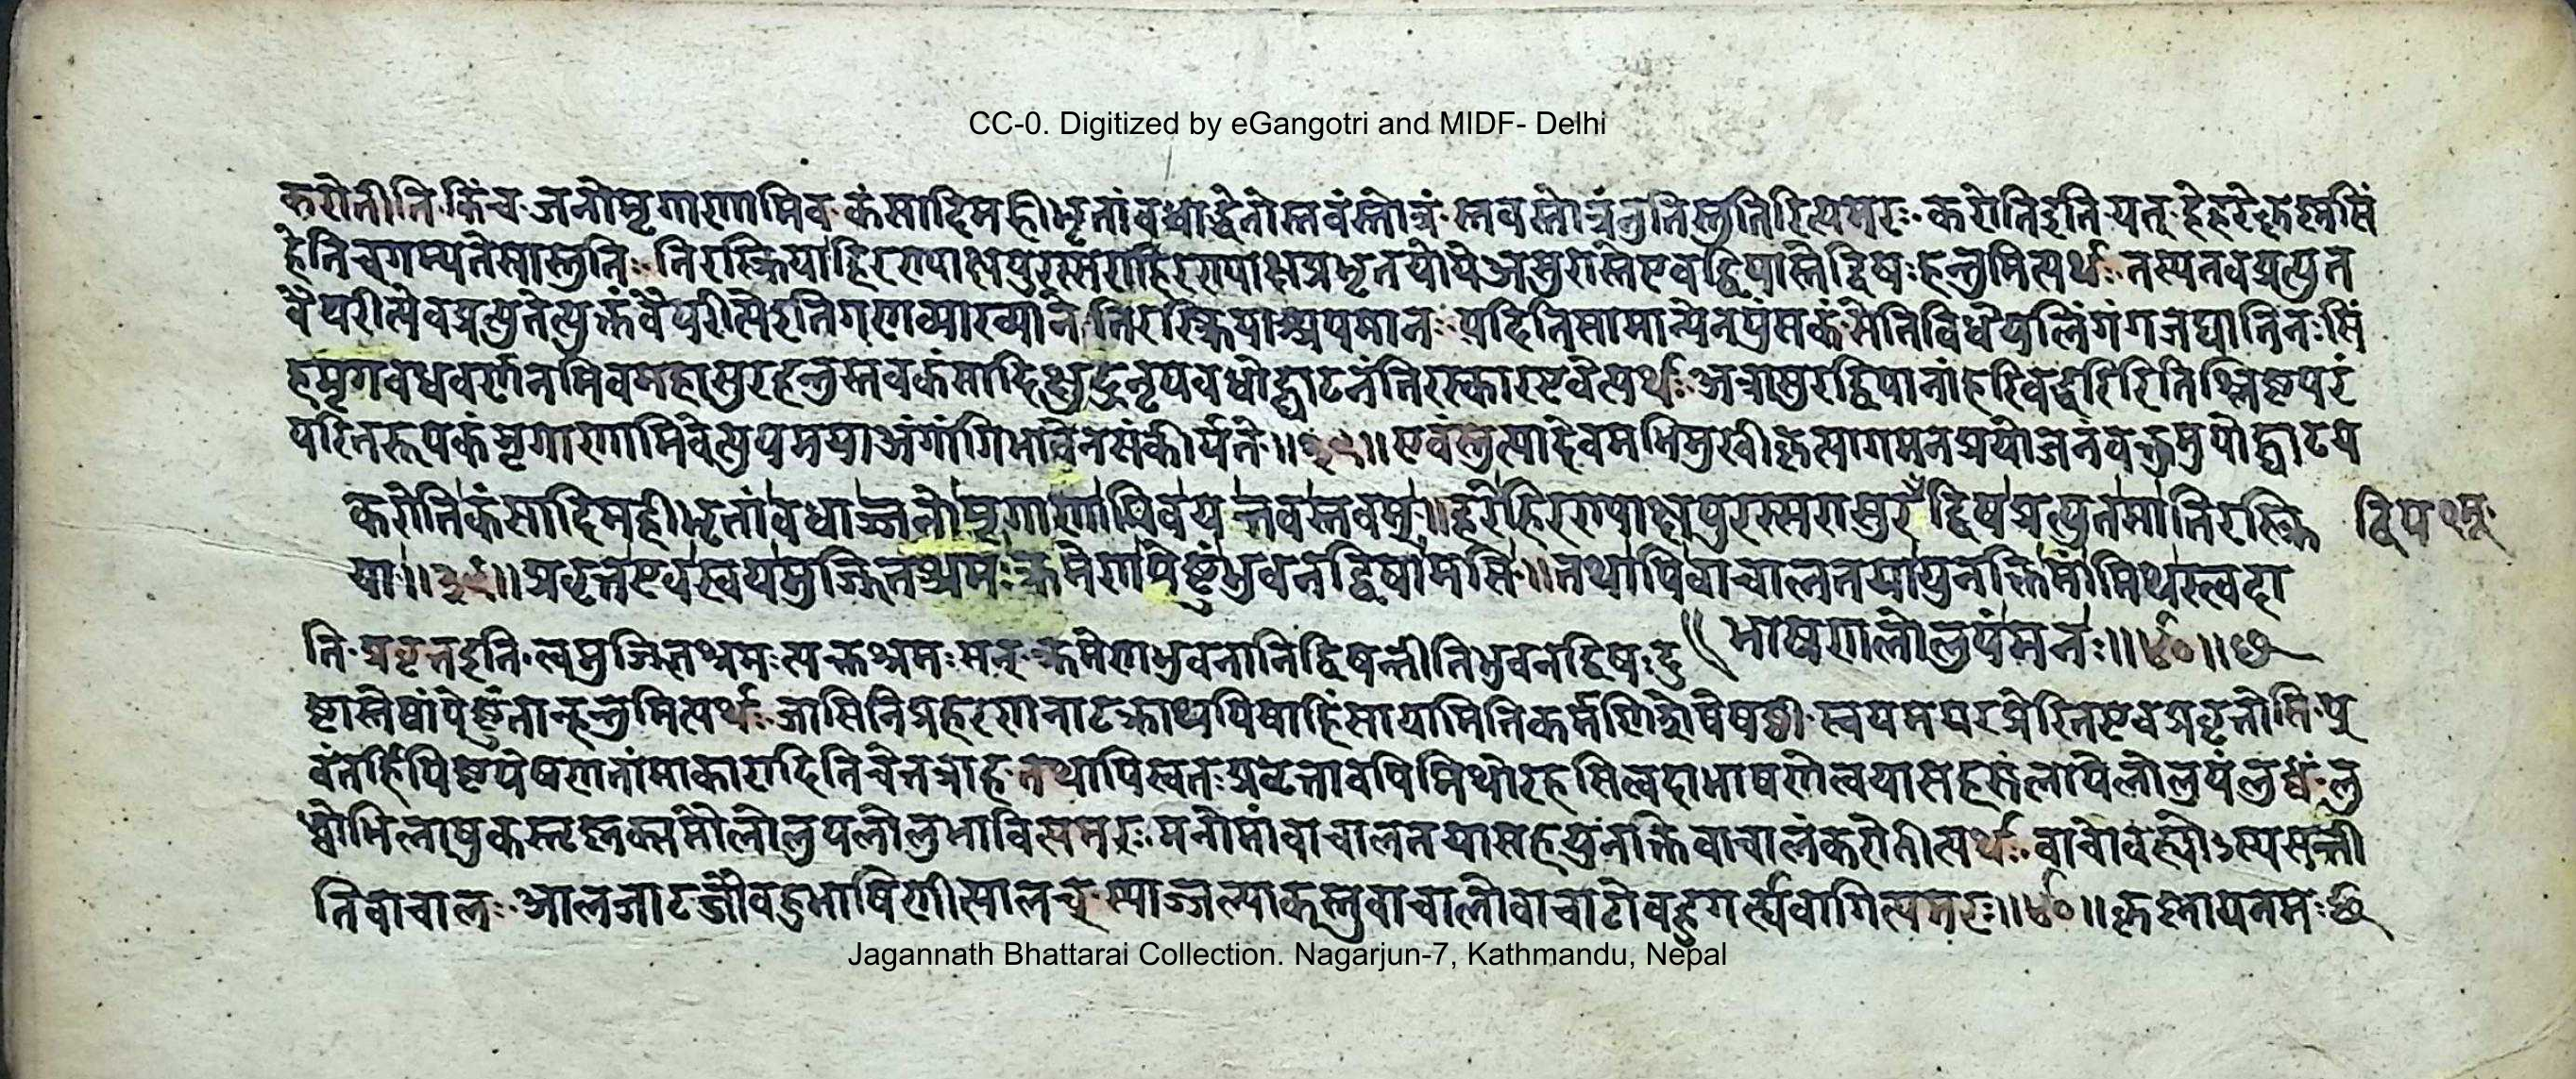 CC-0. Digitized by eGangotri and MIDF- Delhi
करोतीति किंच जनो मृगाणामिव कंसादिमहीभृतां वधाद्धेतोस्तवंस्तोत्रं स्तवस्तोत्रंनुतिस्तुतिरित्यमरः करोतिइति यत् हेहरेकृष्णसिं
हेतिचगम्यतेसास्तुतिः तिरस्क्रिया हिरण्याक्षपुरस्सराहिरण्याक्षप्रभृतयोयेअसुरास्तेएवद्विपास्तेद्विषःहन्तुमित्यर्थः तस्यतवप्रत्युत
वैपरीत्येवप्रत्युतेत्युक्तंवैपरीत्येइतिगणव्याख्याने तिरस्क्रियाश्चपमानः यदितिसामान्येनपुंसकं सेतिविधेयलिंगं गजघातिनःसिं
हमृगवधवर्णनमिवमहासुरहन्तुस्तवकंसादिक्षुद्रनृपवधोद्घाटनंतिरस्कारएवेत्यर्थः अत्रासुरद्विपानांहरिवद्धरिरितिश्लिष्टपरं
परितरूपकं मृगाणामिवेत्युपमयाअंगांगिभावेनसंकीर्यते ॥३९॥ एवंस्तुत्यादेवमभिमुखीकृत्यागमनप्रयोजनंवक्तुमुपोद्घाटय
करोतिकंसादिमहीभृतांवधाज्जनोमृगाणामिवयत्तवस्तवम् ॥ हरेहिरण्याक्षपुरस्सरासुरद्विषप्रत्युतमातिरस्क्रि द्विप
या ॥३९॥ प्रवृत्तएवस्वयमुज्झितश्रमःक्रमेणपेष्टुंभुवनद्विषामसि ॥ तथापिवाचालतयायुनक्तिमांमिथस्त्वदा
भाषणलोलुपंमनः ॥४०॥
ति प्रवृतइति त्वमुज्झितश्रमः त्यक्तश्रमः सन् क्रमेणभुवनानिद्विषन्तीतिभुवनद्विषः दु
ष्टास्तेषांपेष्टुंतान्हन्तुमित्यर्थः जासिनिप्रहरणनाटक्राथपिषाहिंसायामितिकर्मणिशेषेषष्ठी स्वयमपरप्रेरितएवप्रवृत्तोसि पु
वंतर्हिपिष्टपेषणतांमाकारादितिचेत्तत्राह तथापिस्वतःप्रवृत्तावपिमिथोरहसित्वदाभाषणेत्वयासहसंलापेलोलुपंलुब्धं लु
ब्धोभिलाषुकस्तृष्णक्समौलोलुपलोलुभावित्यमरः मनोमांवाचालतयासहयुनक्तिवाचालंकरोतीत्यर्थः वाचोबह्व्योऽस्यसन्ती
तिवाचालः आलजाटजौबहुभाषिणीत्यालच् स्याज्जल्पाकस्तुवाचालोवाचाटोबहुगर्ह्यवागित्यमरः ॥४०॥ कृष्णायनमः
Jagannath Bhattarai Collection. Nagarjun-7, Kathmandu, Nepal